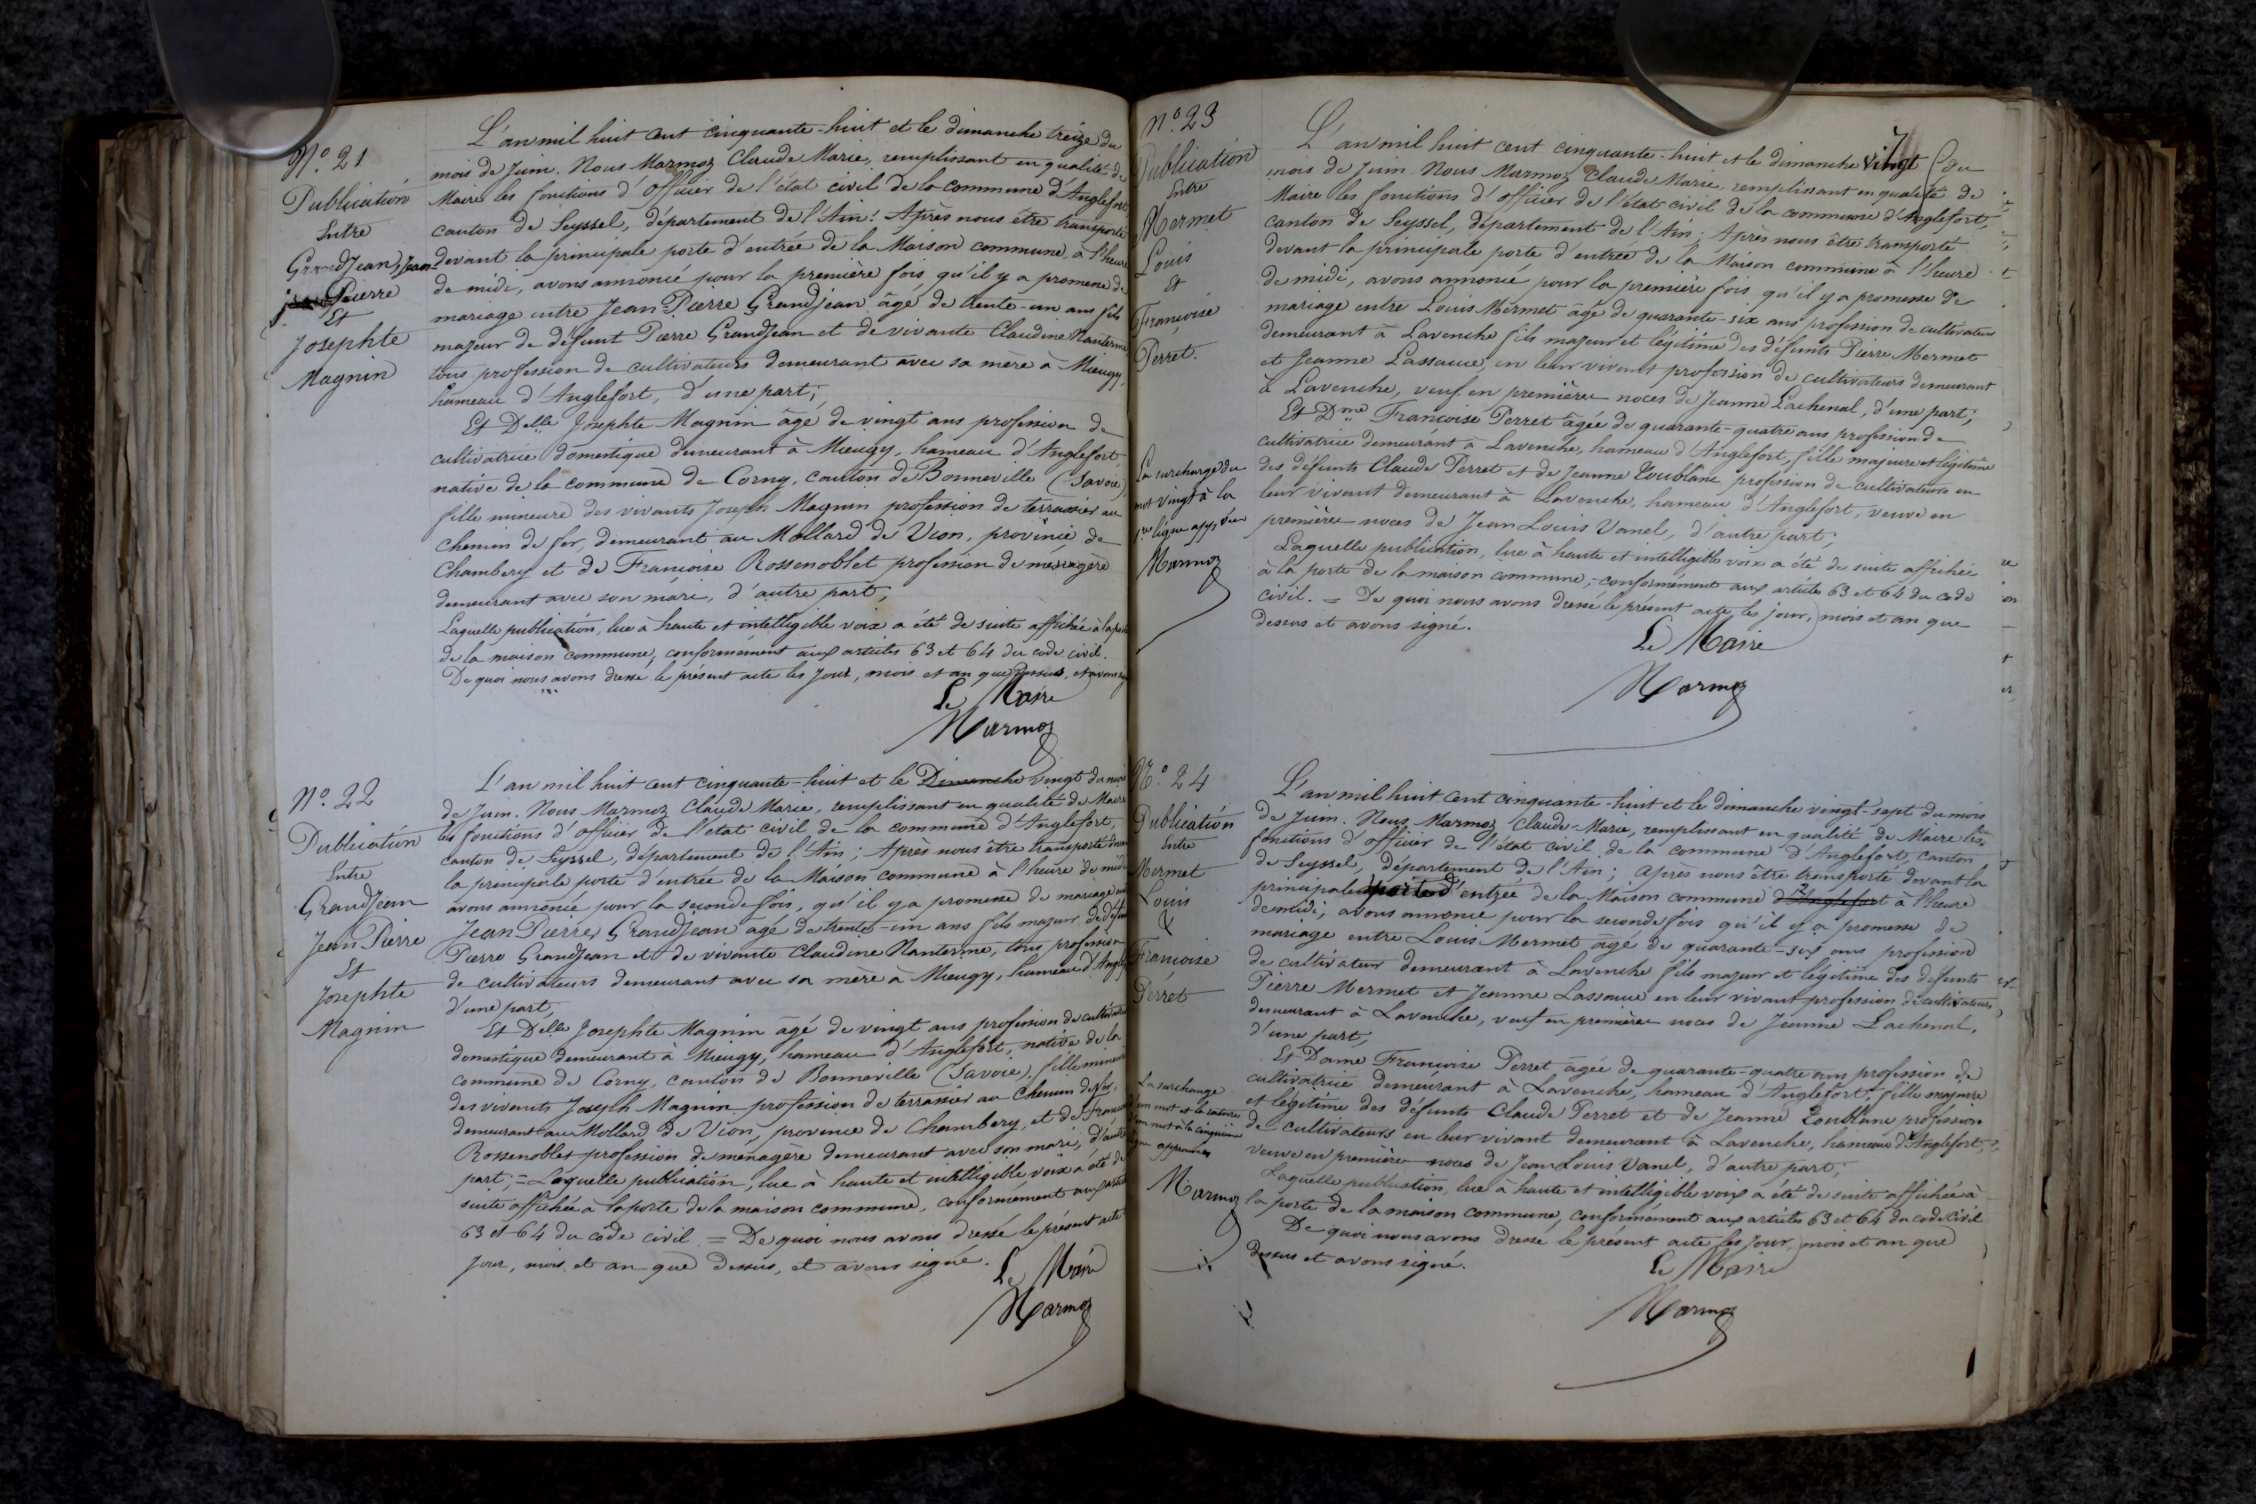 N.° 21
Publication
Entre
GrandJean, Jean
Pierre
Et
Josephte
Magnin
L'an mil huit cent cinquante-huit et le dimanche treize du
mois de Juin. Nous Marmoz Claude Marie, remplissant en qualité de
Maire les fonctions d'officier de l'état civil de la commune d'Anglefort
canton de Seyssel, département de l'Ain: Après nous être transporté
devant la principale porte d'entrée de la Maison commune, à l'heure
de midi, avons annoncé pour la première fois qu'il y a promesse de
mariage entre Jean Pierre Grandjean âgé de trente-un ans fils
majeur de défunt Pierre GrandJean et de vivante Claudine Nanterme
tous profession de cultivateurs demeurant avec sa mère à Mieugy,
hameau d'Anglefort, d'une part;
Et Delle Josephte Magnin âgé de vingt ans profession de
cultivatrice domestique demeurant à Mieugy, hameau d'Anglefort
native de la commune de Corny, canton de Bonneville (Savoie),
fille mineure des vivants Joseph Magnin profession de terrassier au
chemin de fer, demeurant au Mollard de Vion, province de
Chambery et de Françoise Rossenoblet profession de ménagère
demeurant avec son mari, d'autre part;
Laquelle publication, lue à haute et intelligible voix a été de suite affichée à la porte
de la maison commune, conformément aux articles 63 et 64 du code civil.
De quoi nous avons dressé le présent acte les jour, mois et an que dessus, et avons
Le Maire
Marmoz
N.° 22
Publication
Entre
GrandJean
Jean Pierre
Et
Josephte
Magnin
L'an mil huit cent cinquante-huit et le Dimanche vingt du mois
de Juin. Nous Marmoz Claude Marie, remplissant en qualité de Maire
les fonctions d'officier de l'état civil de la commune d'Anglefort,
canton de Seyssel, département de l'Ain; Après nous être transporté devant
la principale porte d'entrée de la Maison commune à l'heure de midi
avons annoncé pour la seconde fois, qu'il y a promesse de mariage
Jean Pierre GrandJean âgé de trente-un ans fils majeur de défunt
Pierre GrandJean et de vivante Claudine Nanterme, tous profession
de cultivateurs demeurant avec sa mère à Mieugy, hameau d'Anglef
d'une part,
Et Delle Josephte Magnin âgé de vingt ans profession de cultivatrice
domestique demeurant à Mieugy, hameau d'Anglefort, native de la
commune de Corny, canton de Bonneville (Savoie), fille mineure
des vivants Joseph Magnin profession de terrassier au Chemin de fer,
demeurant au Mollard de Vion, province de Chambery, et de Françoise
Rossenoblet profession de ménagère demeurant avec son mari, d'autre
part; = Laquelle publication, lue à haute et intelligible voix a été de
suite affichée à la porte de la maison commune, conformément aux articles
63 et 64 du code civil. = De quoi nous avons dressé le présent acte
jour, mois et an que dessus, et avons signé.
Le Maire
Marmoz
N.° 23
Publication
Entre
Mermet
Louis
Et
Françoise
Perret.
La surcharge du
mot vingt à la
1re ligne app.
Marmoz
L'an mil huit cent cinquante-huit et le dimanche vingt du
mois de Juin. Nous Marmoz Claude Marie, remplissant en qualité de
Maire les fonctions d'officier de l'état civil de la commune d'Anglefort,
canton de Seyssel, département de l'Ain; Après nous être transporté
devant la principale porte d'entrée de la Maison commune à l'heure
de midi, avons annoncé pour la première fois qu'il y a promesse de
mariage entre Louis Mermet âgé de quarante-six ans profession de cultivateur
demeurant à Lavenche fils majeur et légitime des défunts Pierre Mermet
et Jeanne Lassauce, en leur vivant profession de cultivateurs demeurant
à Lavenche, veuf en première noces de Jeanne Lachenal, d'une part;
Et Dme Françoise Perret âgée de quarante-quatre ans profession de
cultivatrice demeurant à Lavenche, hameau d'Anglefort, fille majeure et légitime
des défunts Claude Perret et de Jeanne Toublanc profession de cultivateurs en
leur vivant demeurant à Lavenche, hameau d'Anglefort, veuve en
première noces de Jean Louis Vanel, d'autre part;
Laquelle publication, lue à haute et intelligible voix a été de suite affichée
à la porte de la maison commune, conformément aux articles 63 et 64 du code
civil. = De quoi nous avons dressé le présent acte les jour, mois et an que
dessus et avons signé.
Le Maire
Marmoz
N.° 24
Publication
Entre
Mermet
Louis
&
Françoise
Perret
La surcharge
un mot et la rature
un mot à la cinquième
approuvées
Marmoz
L'an mil huit cent cinquante-huit et le dimanche vingt-sept du mois
de Juin. Nous Marmoz Claude-Marie, remplissant en qualité de Maire les
fonctions d'officier de l'état civil de la commune d'Anglefort, canton
de Seyssel, département de l'Ain; Après nous être transporté devant la
principale porte d'entrée de la Maison commune d'Anglefort à l'heure
de midi, avons annoncé pour la seconde fois qu'il y a promesse de
mariage entre Louis Mermet âgé de quarante-six ans profession
de cultivateur demeurant à Lavenche fils majeur et légitime des défunts
Pierre Mermet et Jeanne Lassauce en leur vivant profession de cultivateurs,
demeurant à Lavenche, veuf en première noces de Jeanne Lachenal,
d'une part,
Et Dame Françoise Perret, âgée de quarante-quatre ans profession de
cultivatrice demeurant à Lavenche, hameau d'Anglefort, fille majeure
et légitime des défunts Claude Perret et de Jeanne Toublanc profession
de cultivateurs en leur vivant demeurant à Lavenche, hameau d'Anglefort,
veuve en première noces de Jean Louis Vanel, d'autre part;
Laquelle publication, lue à haute et intelligible voix a été de suite affichée à
la porte de la maison commune, conformément aux articles 63 et 64 du code civil
De quoi nous avons dressé le présent acte les jour, mois et an que
dessus et avons signé.
Le Maire
Marmoz